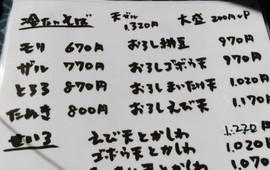 冷たいそば 天ザル 1,320円 大盛 200円UP
モリ 670円 おろし納豆 970円
ザル 770円 おろしゴボウ天 970円
とろろ 870円 おろしまいたけ天 1,020円
たぬき 800円 おろしえび天 1,170円
せいろ えび天とかしわ 1,220円
ゴボウ天とかしわ 1,020円
天とかしわ 1,070